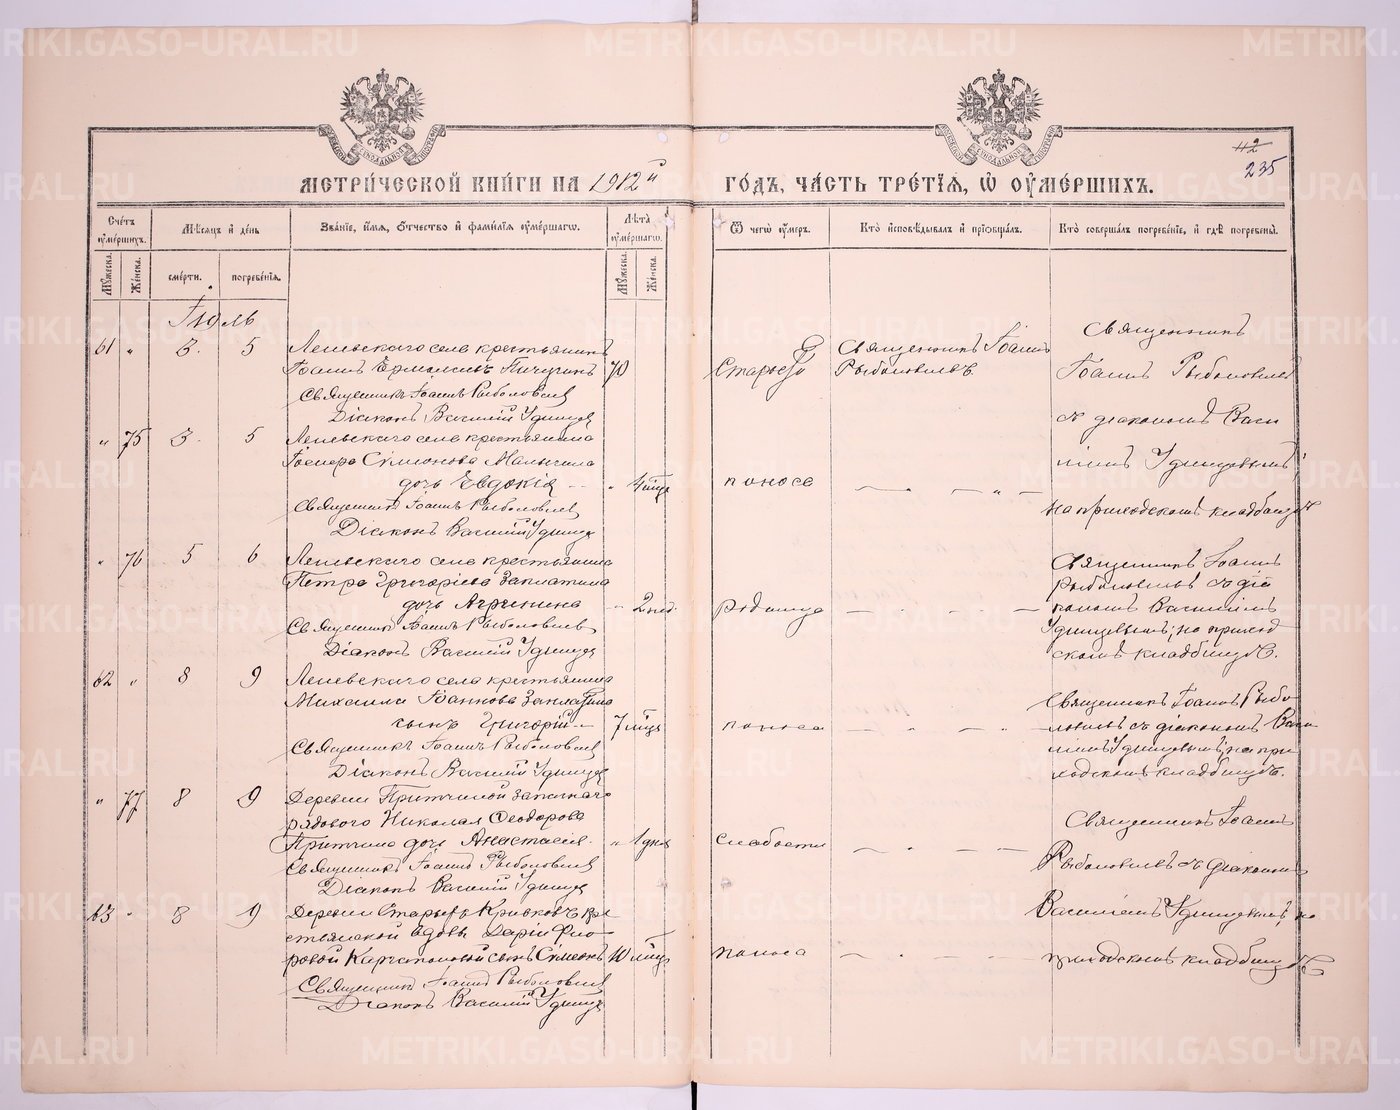 МЕТРИЧЕСКОЙ КНИГИ НА 1912й ГОДЪ, ЧАСТЬ ТРЕТІЯ, Ѡ ОУМЕРШИХЪ.
112
235
Счетъ оумершихъ.
Мужеска.
Женска.
Мѣсяцъ и день
смерти.
погребенія.
Званіе, имя, отчество и фамилія оумершагѡ.
Лѣта оумершагѡ.
Мужеска.
Женска.
Ѿ чегѡ оумеръ.
Кто исповѣдывалъ и пріобщалъ.
Кто совершалъ погребеніе, и гдѣ погребены.
Іюль
61 " 3. 5
села крестьянинъ
Іоаннъ Пичугинъ 70
Священникъ Іоаннъ Рыболовлев
Діаконъ Василій Удинцев
Старости
Священникъ Іоаннъ
Рыболовлевъ
Священникъ
Іоаннъ Рыболовлев
съ діакономъ Васи
ліемъ Удинцевымъ,
на приходскомъ кладбищѣ
" 75 3. 5
села крестьянина
дочь Евдокія " 4 мца
Священникъ Іоаннъ Рыболовлев
Діаконъ Василій Удинцев
поноса
" 76 5 6
села крестьянина
Петра Григоріева Заплатина
дочь Агриппина " 2 нед.
Священникъ Іоаннъ Рыболовлев
Діаконъ Василій Удинцев
родимца
Священникъ Іоаннъ
Рыболовлевъ съ діа
кономъ Василіемъ
Удинцевымъ; на приход
скомъ кладбищѣ.
62 " 8 9
села крестьянина
Михаила Іоаннова Заплатина
сынъ Григорій 7 мца
Священникъ Іоаннъ Рыболовлев
Діаконъ Василій Удинцев
поноса
Священникъ Іоаннъ Рыбо
ловлевъ съ діакономъ Васи
ліемъ Удинцевымъ; на при
ходскомъ кладбищѣ.
" 77 8 9
Деревни Притчиной запаснаго
рядового Николая Ѳеодорова
Притчина дочь Анастасія. " 1 дня
Священникъ Іоаннъ Рыболовлев
Діаконъ Василій Удинцев
слабости
Священникъ Іоаннъ
Рыболовлевъ съ діакономъ
Василіемъ Удинцевымъ; на
приходскомъ кладбищѣ
63 " 8 9
Деревни Кривковъ кре
стьянской вдовы Даріи Фло
ровой Каргаполовой сынъ Сѵмеонъ 10 мца
Священникъ Іоаннъ Рыболовлев
Діаконъ Василій Удинцев
поноса
METRIKI.GASO-URAL.RU